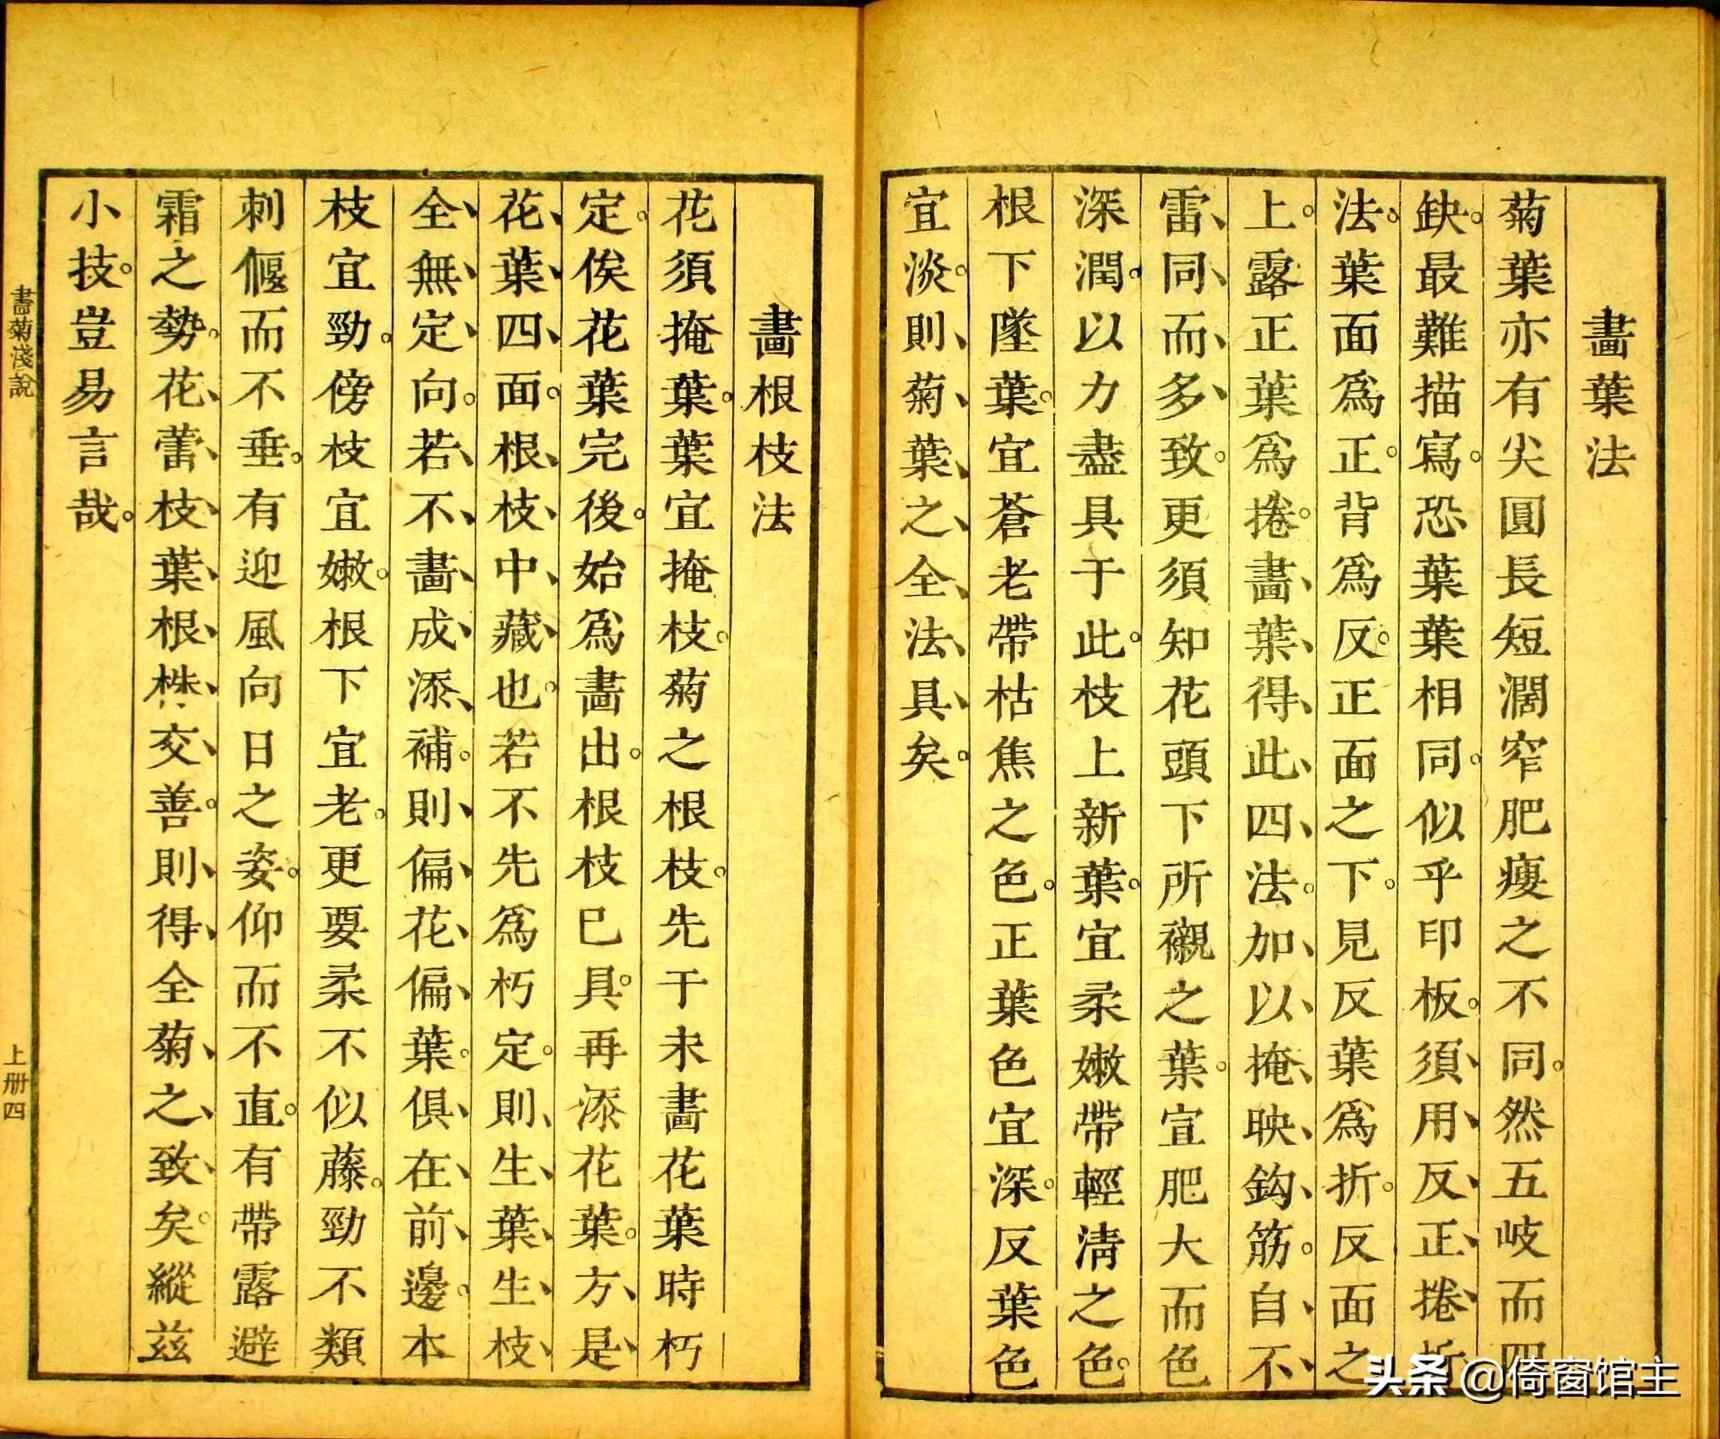 畫葉法
菊葉亦有尖圓長短濶窄肥瘦之不同。然五岐而四
缺。最難描寫。恐葉葉相同。似乎印板。須、用、反、正、捲、折、
法。葉面爲正。背爲反。正面之下。見反葉爲折。反面之
上。露正葉爲捲。畫、葉、得、此、四、法。加、以、掩、映、鈎、筋。自、不、
雷、同、而、多、致。更須知花頭下所襯之葉。宜肥大而色
深潤。以力盡具于此。枝上新葉。宜柔嫩帶輕淸之色。
根下墜葉。宜蒼老帶枯焦之色。正葉色宜深。反葉色
宜淡。則、菊、葉、之、全、法、具、矣。
畫根枝法
花須掩葉。葉宜掩枝。菊之根枝。先于未畫花葉時朽
定。俟花葉完後。始爲畫出。根枝已具。再添花葉。方、是、
花、葉、四、面。根、枝、中、藏、也。若不先爲朽定。則、生、葉、生、枝、
全、無、定、向。若、不、畫、成、添、補。則、偏、花、偏、葉。俱、在、前、邊。本
枝宜勁。傍枝宜嫩。根下宜老。更要柔不似藤。勁不類
刺。偃而不垂。有迎風向日之姿。仰而不直。有帶露避
霜之勢。花、蕾、枝、葉、根、株、交、善。則、得、全菊、之、致、矣。縱茲
小技。豈易言哉。
畫菊淺說
上册四
头条 @倚窗馆主